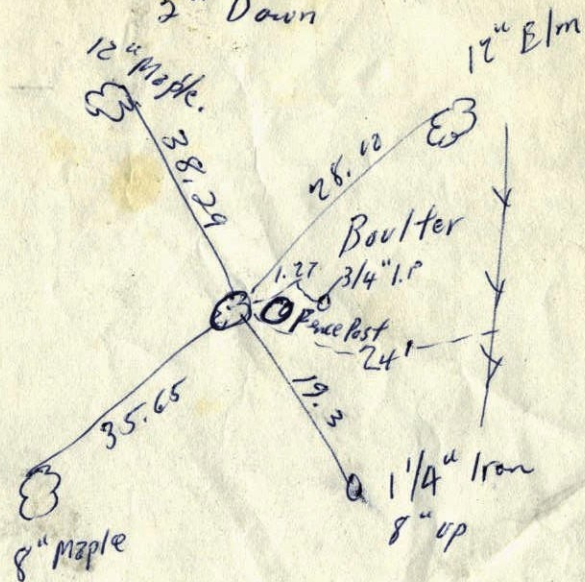 2" Down
12" Maple.
12" Elm
38.29
Boulter
1.27
3/4" I.P
Fence Post
24'
35.65
19.3
1 1/4" Iron
8" up
8" Maple